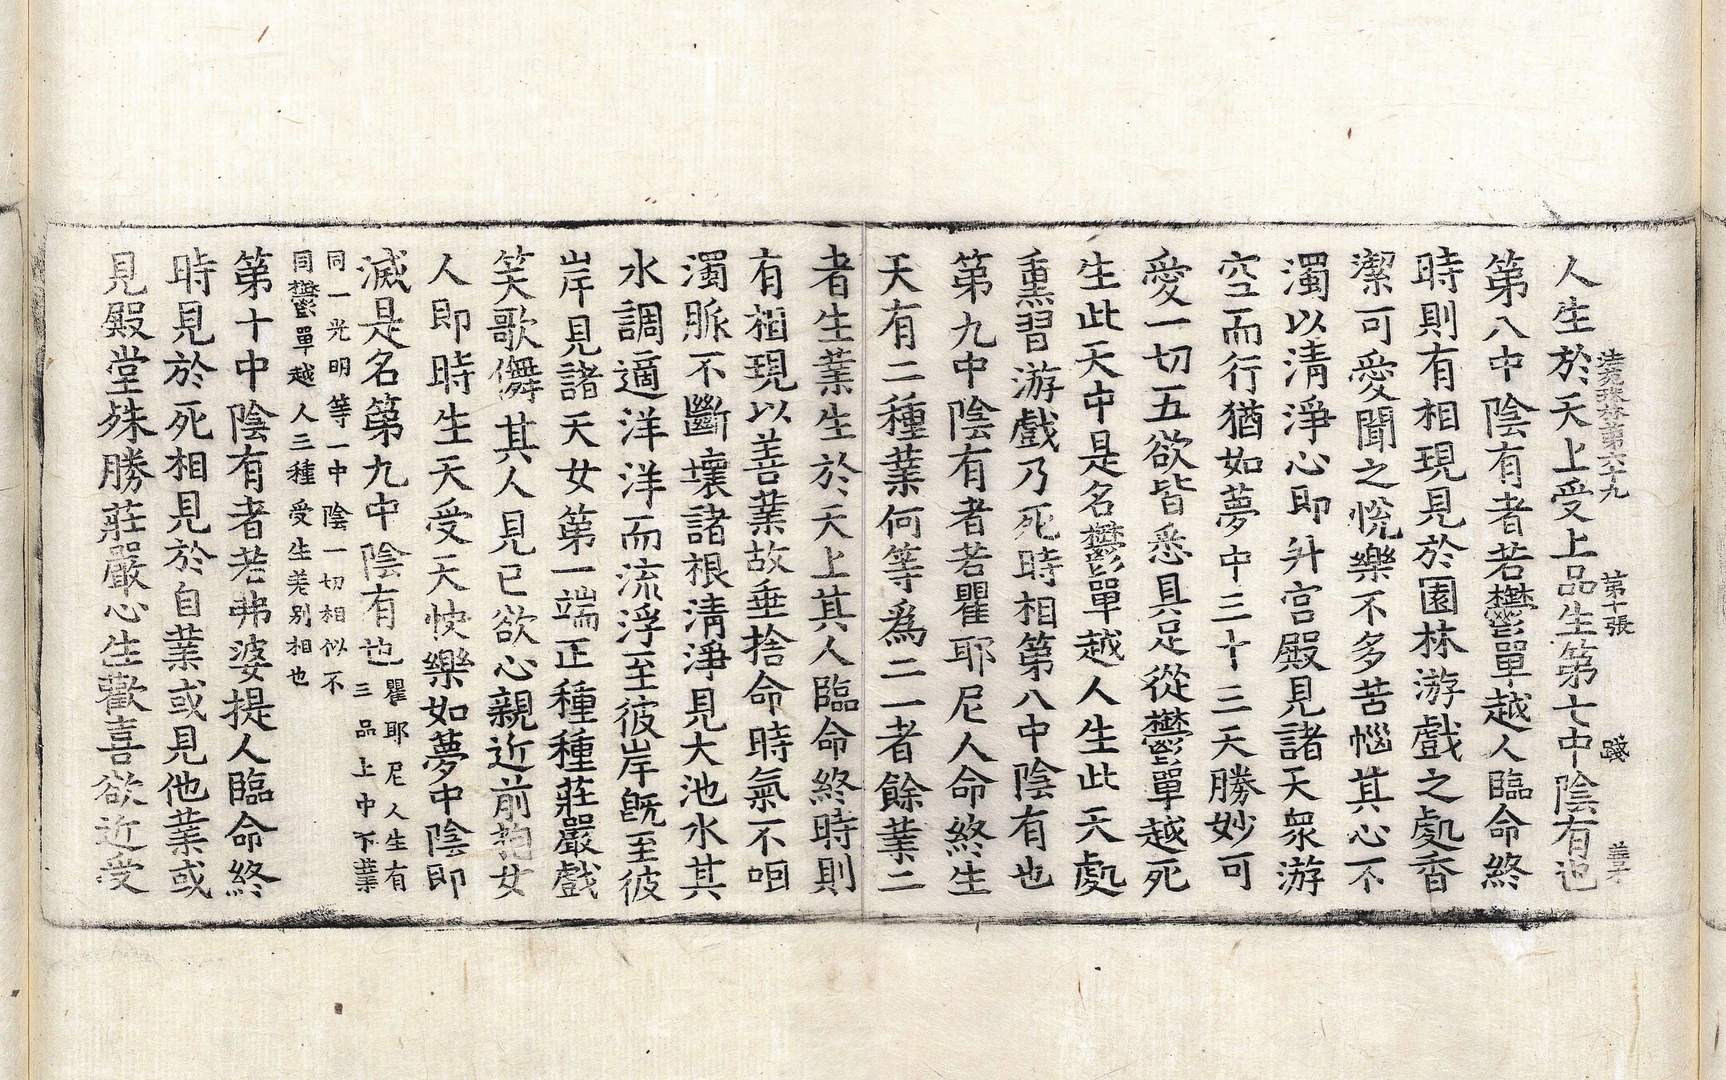 法苑珠林第六十九 第十張
人生於天上受上品生第七中陰有也
第八中陰有者若鬱單越人臨命終
時則有相現見於園林游戲之處香
潔可愛聞之悅樂不多苦惱其心不
濁以清淨心即升宮殿見諸天衆游
空而行猶如夢中三十三天勝妙可
愛一切五欲皆悉具足從鬱單越死
生此天中是名鬱單越人生此天處
熏習游戲乃死時相第八中陰有也
第九中陰有者若瞿耶尼人命終生
天有二種業何等爲二一者餘業二
者生業生於天上其人臨命終時則
有相現以善業故垂捨命時氣不咽
濁脈不斷壞諸根清淨見大池水其
水調適洋洋而流浮至彼岸旣至彼
岸見諸天女第一端正種種莊嚴戲
笑歌儛其人見已欲心親近前抱女
人即時生天受天快樂如夢中陰即
滅是名第九中陰有也瞿耶尼人生有三品上中下業
同一光明等一中陰一切相似不
同鬱單越人三種受生差别相也
第十中陰有者若弗婆提人臨命終
時見於死相見於自業或見他業或
見殿堂殊勝莊嚴心生歡喜欲近受